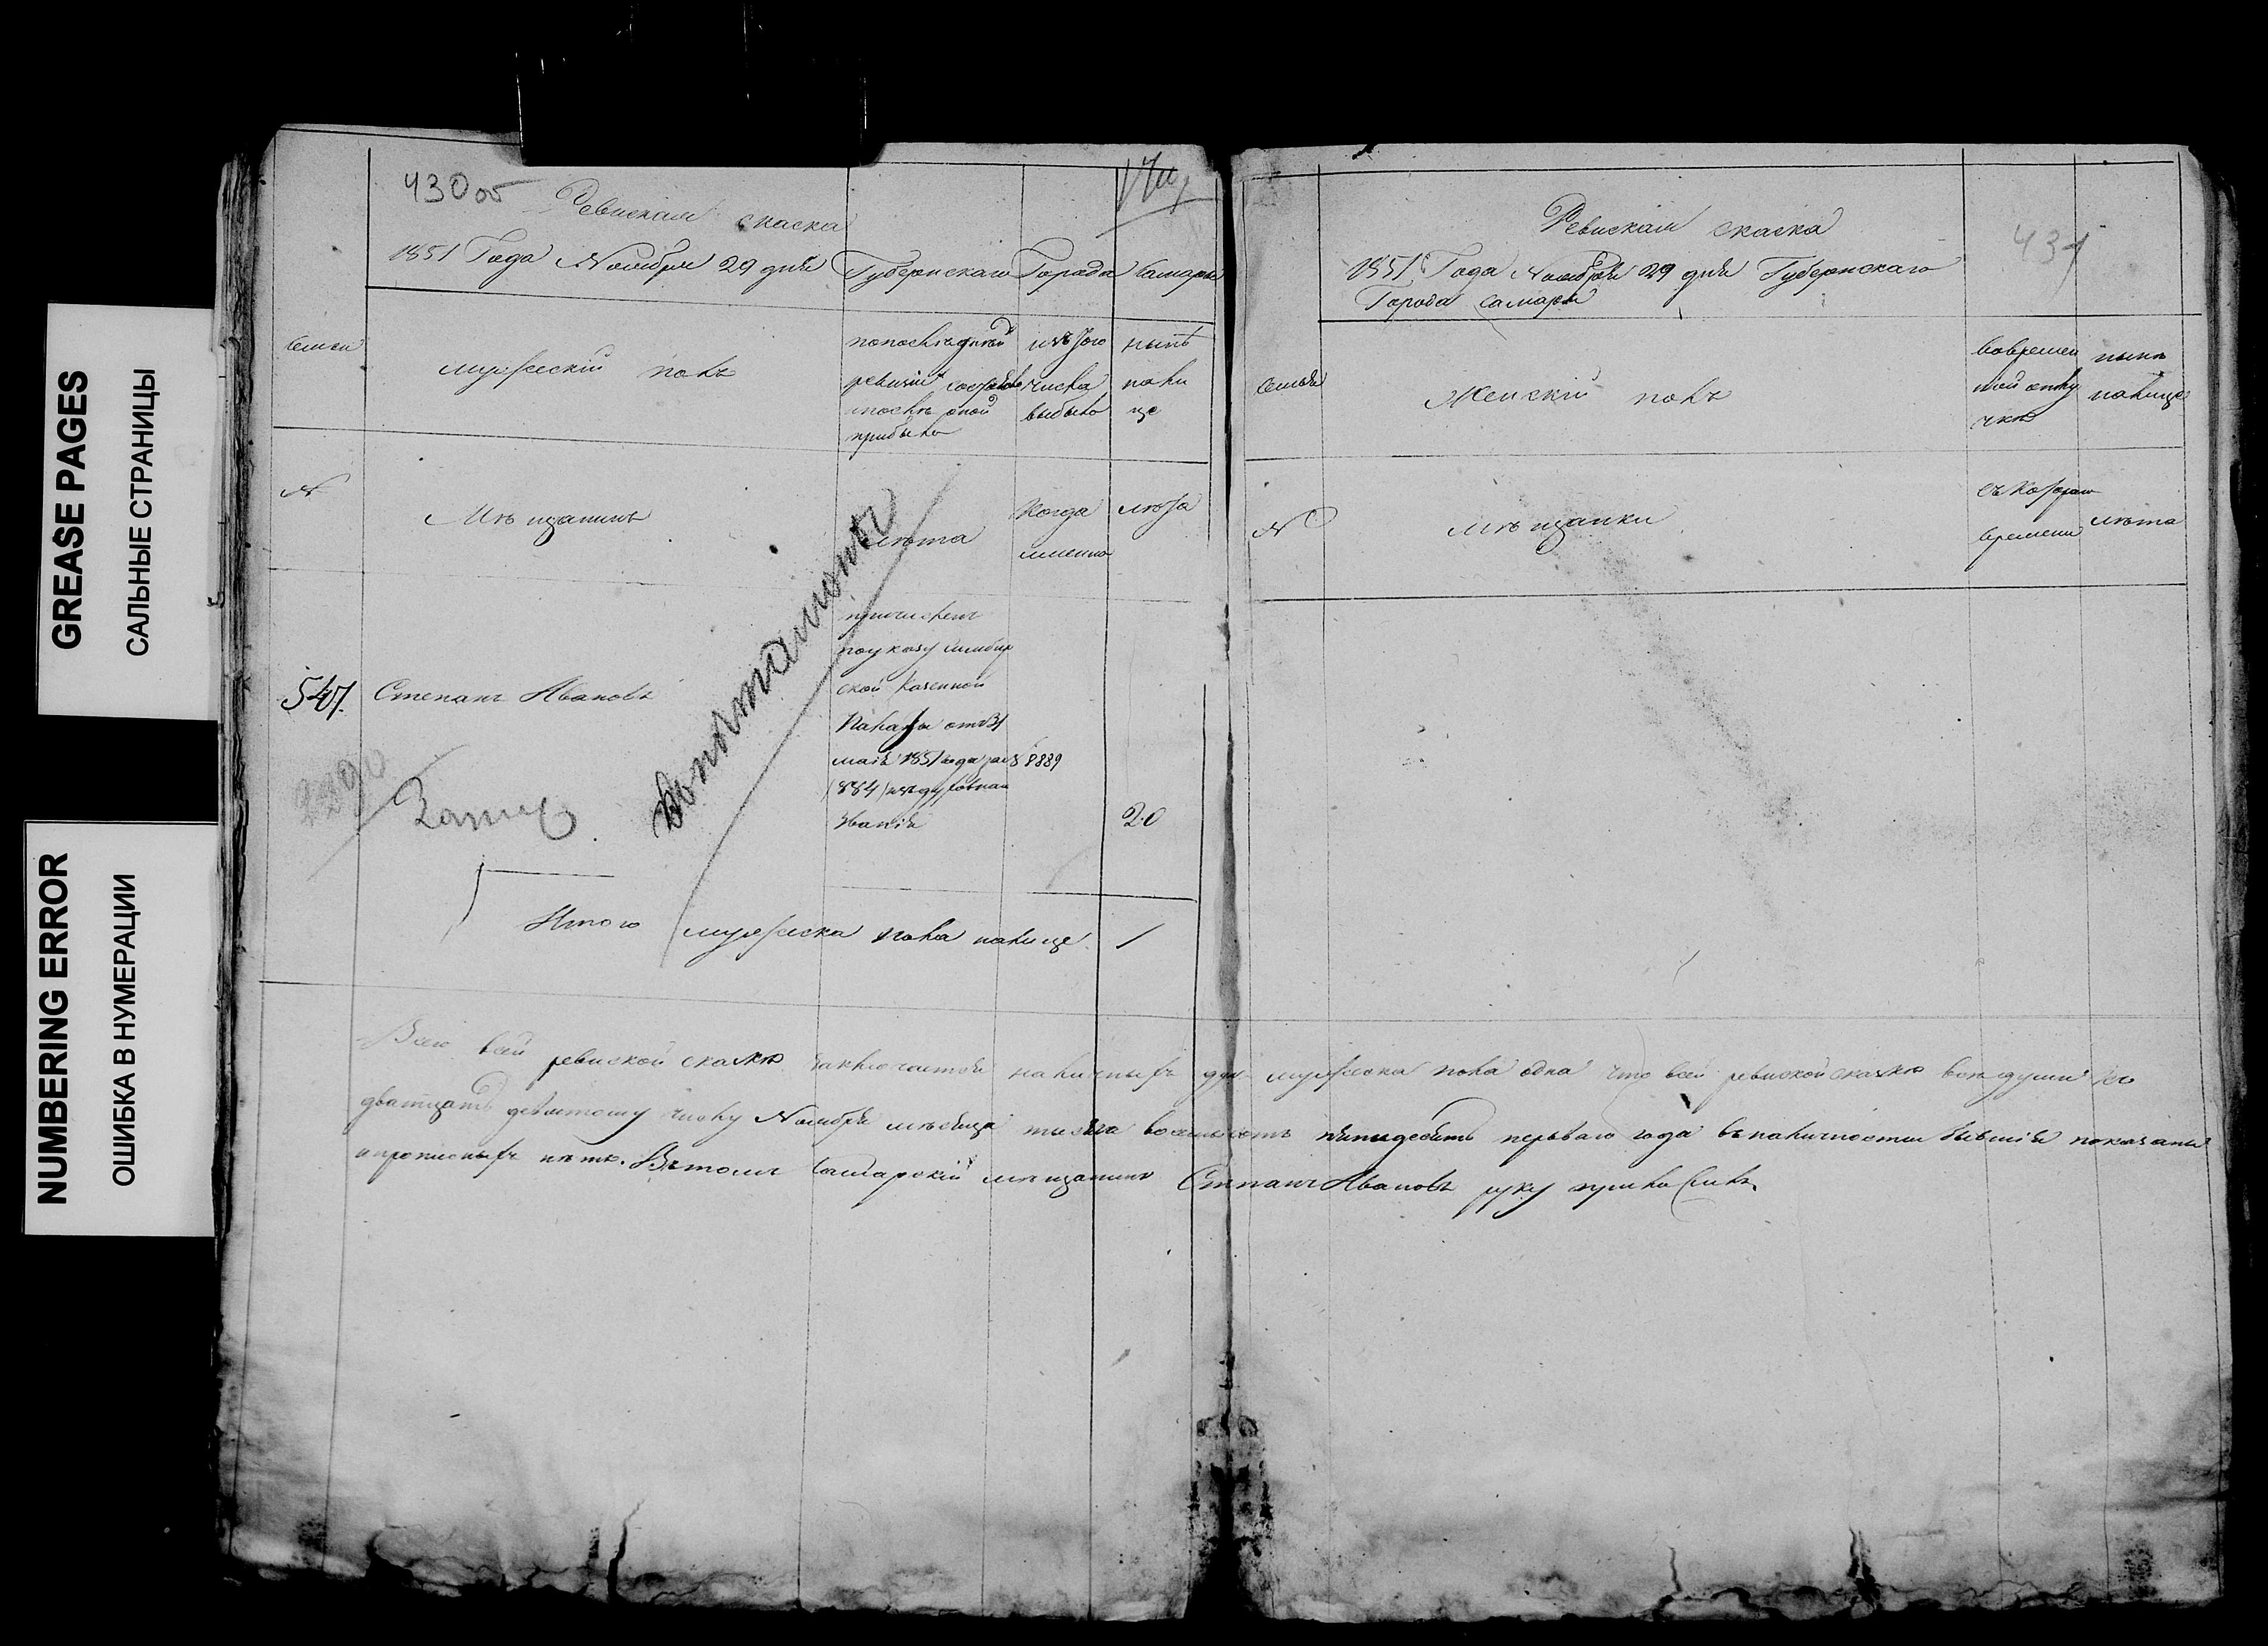 GREASE PAGES
САЛЬНЫЕ СТРАНИЦЫ
NUMBERING ERROR
ОШИБКА В НУМЕРАЦИИ
430 об
Ревиская скаска
1851 Года Ноября 29 дня Губернскаго Города Самары
Семьи
мужескій полъ
попоследней
ревизіи состояло
ипосле оной
прибыло
изътого
числа
выбыло
ныне
нали
це
№
Мещанинъ
лета
Когда
именно
лета
547. Степанъ Ивановъ
причисленъ
поуказу Симбир
ской Казенной
Палаты отъ 31
мая 1851 года за № 8889
(884) изъ духовнаго
званія
20
2290
Итого мужеска пола налице 1
431
Ревиская скаска
1851 Года Ноября 29 дня Губернскаго
Города Самары
Семья
Женскій полъ
вовремен
ной отлу
чке
ныне
налице
№
мещанки
съ котораго
времени
лета
Всего всей ревиской скаске заключается наличныхъ душ мужеска пола одна что всей ревиской скаске все души къ
дватцать девятому числу Ноября месяца тысяча восемьсотъ пятидесятъ перваго года въналичности бывшія показаны
ипрописныхъ нетъ. Вътомъ Самарскій мещанинъ Степанъ Ивановъ руку приложилъ